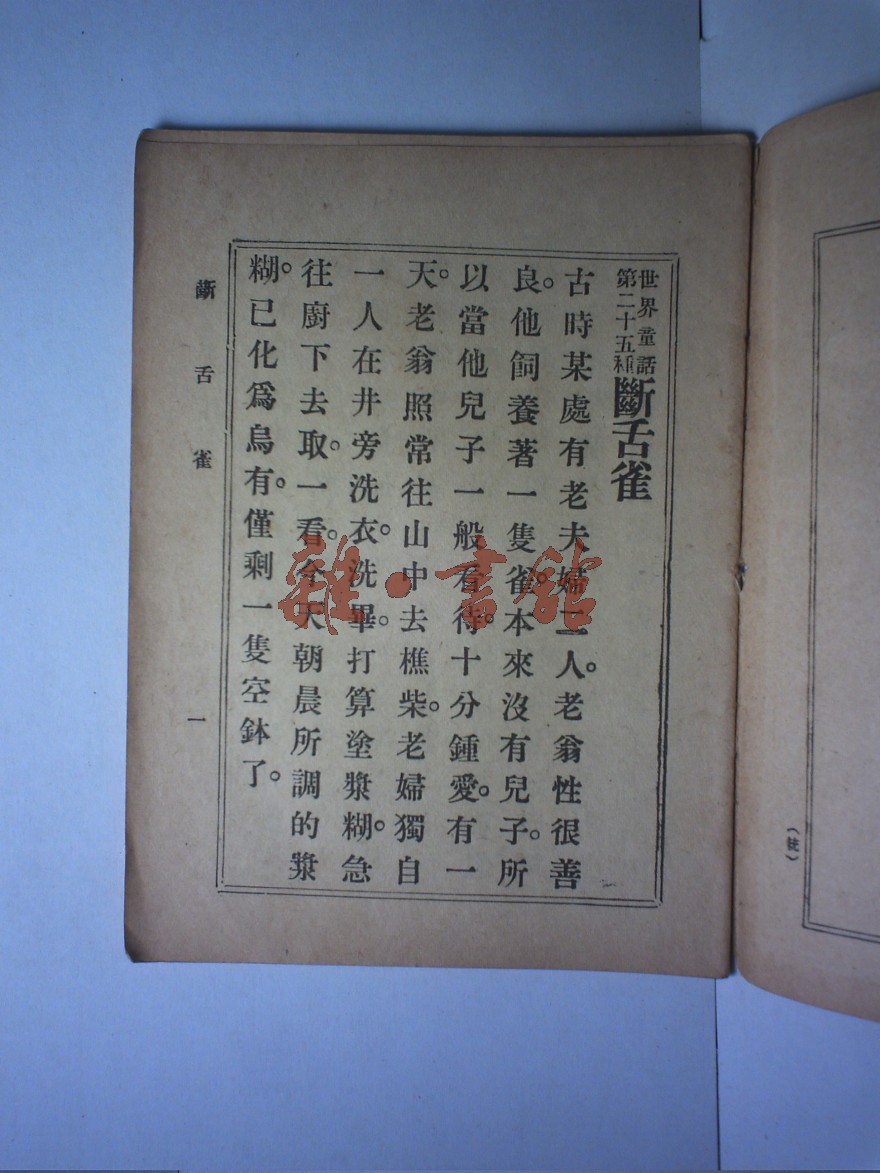 世界童話
第二十五種
斷舌雀
古時某處有老夫婦二人。老翁性很善
良。他飼養著一隻雀。本來沒有兒子。所
以當他兒子一般看待。十分鍾愛。有一
天。老翁照常往山中去樵柴。老婦獨自
一人在井旁洗衣。洗畢。打算塗漿糊。急
往廚下去取。一看。今天朝晨所調的漿
糊。已化爲烏有。僅剩一隻空鉢了。
斷舌雀
一
雜·書館